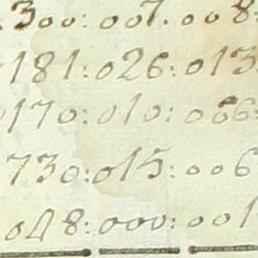 300: 007. 008:
181: 026: 013
170: 010: 006:
730: 015: 006
048: 000: 001